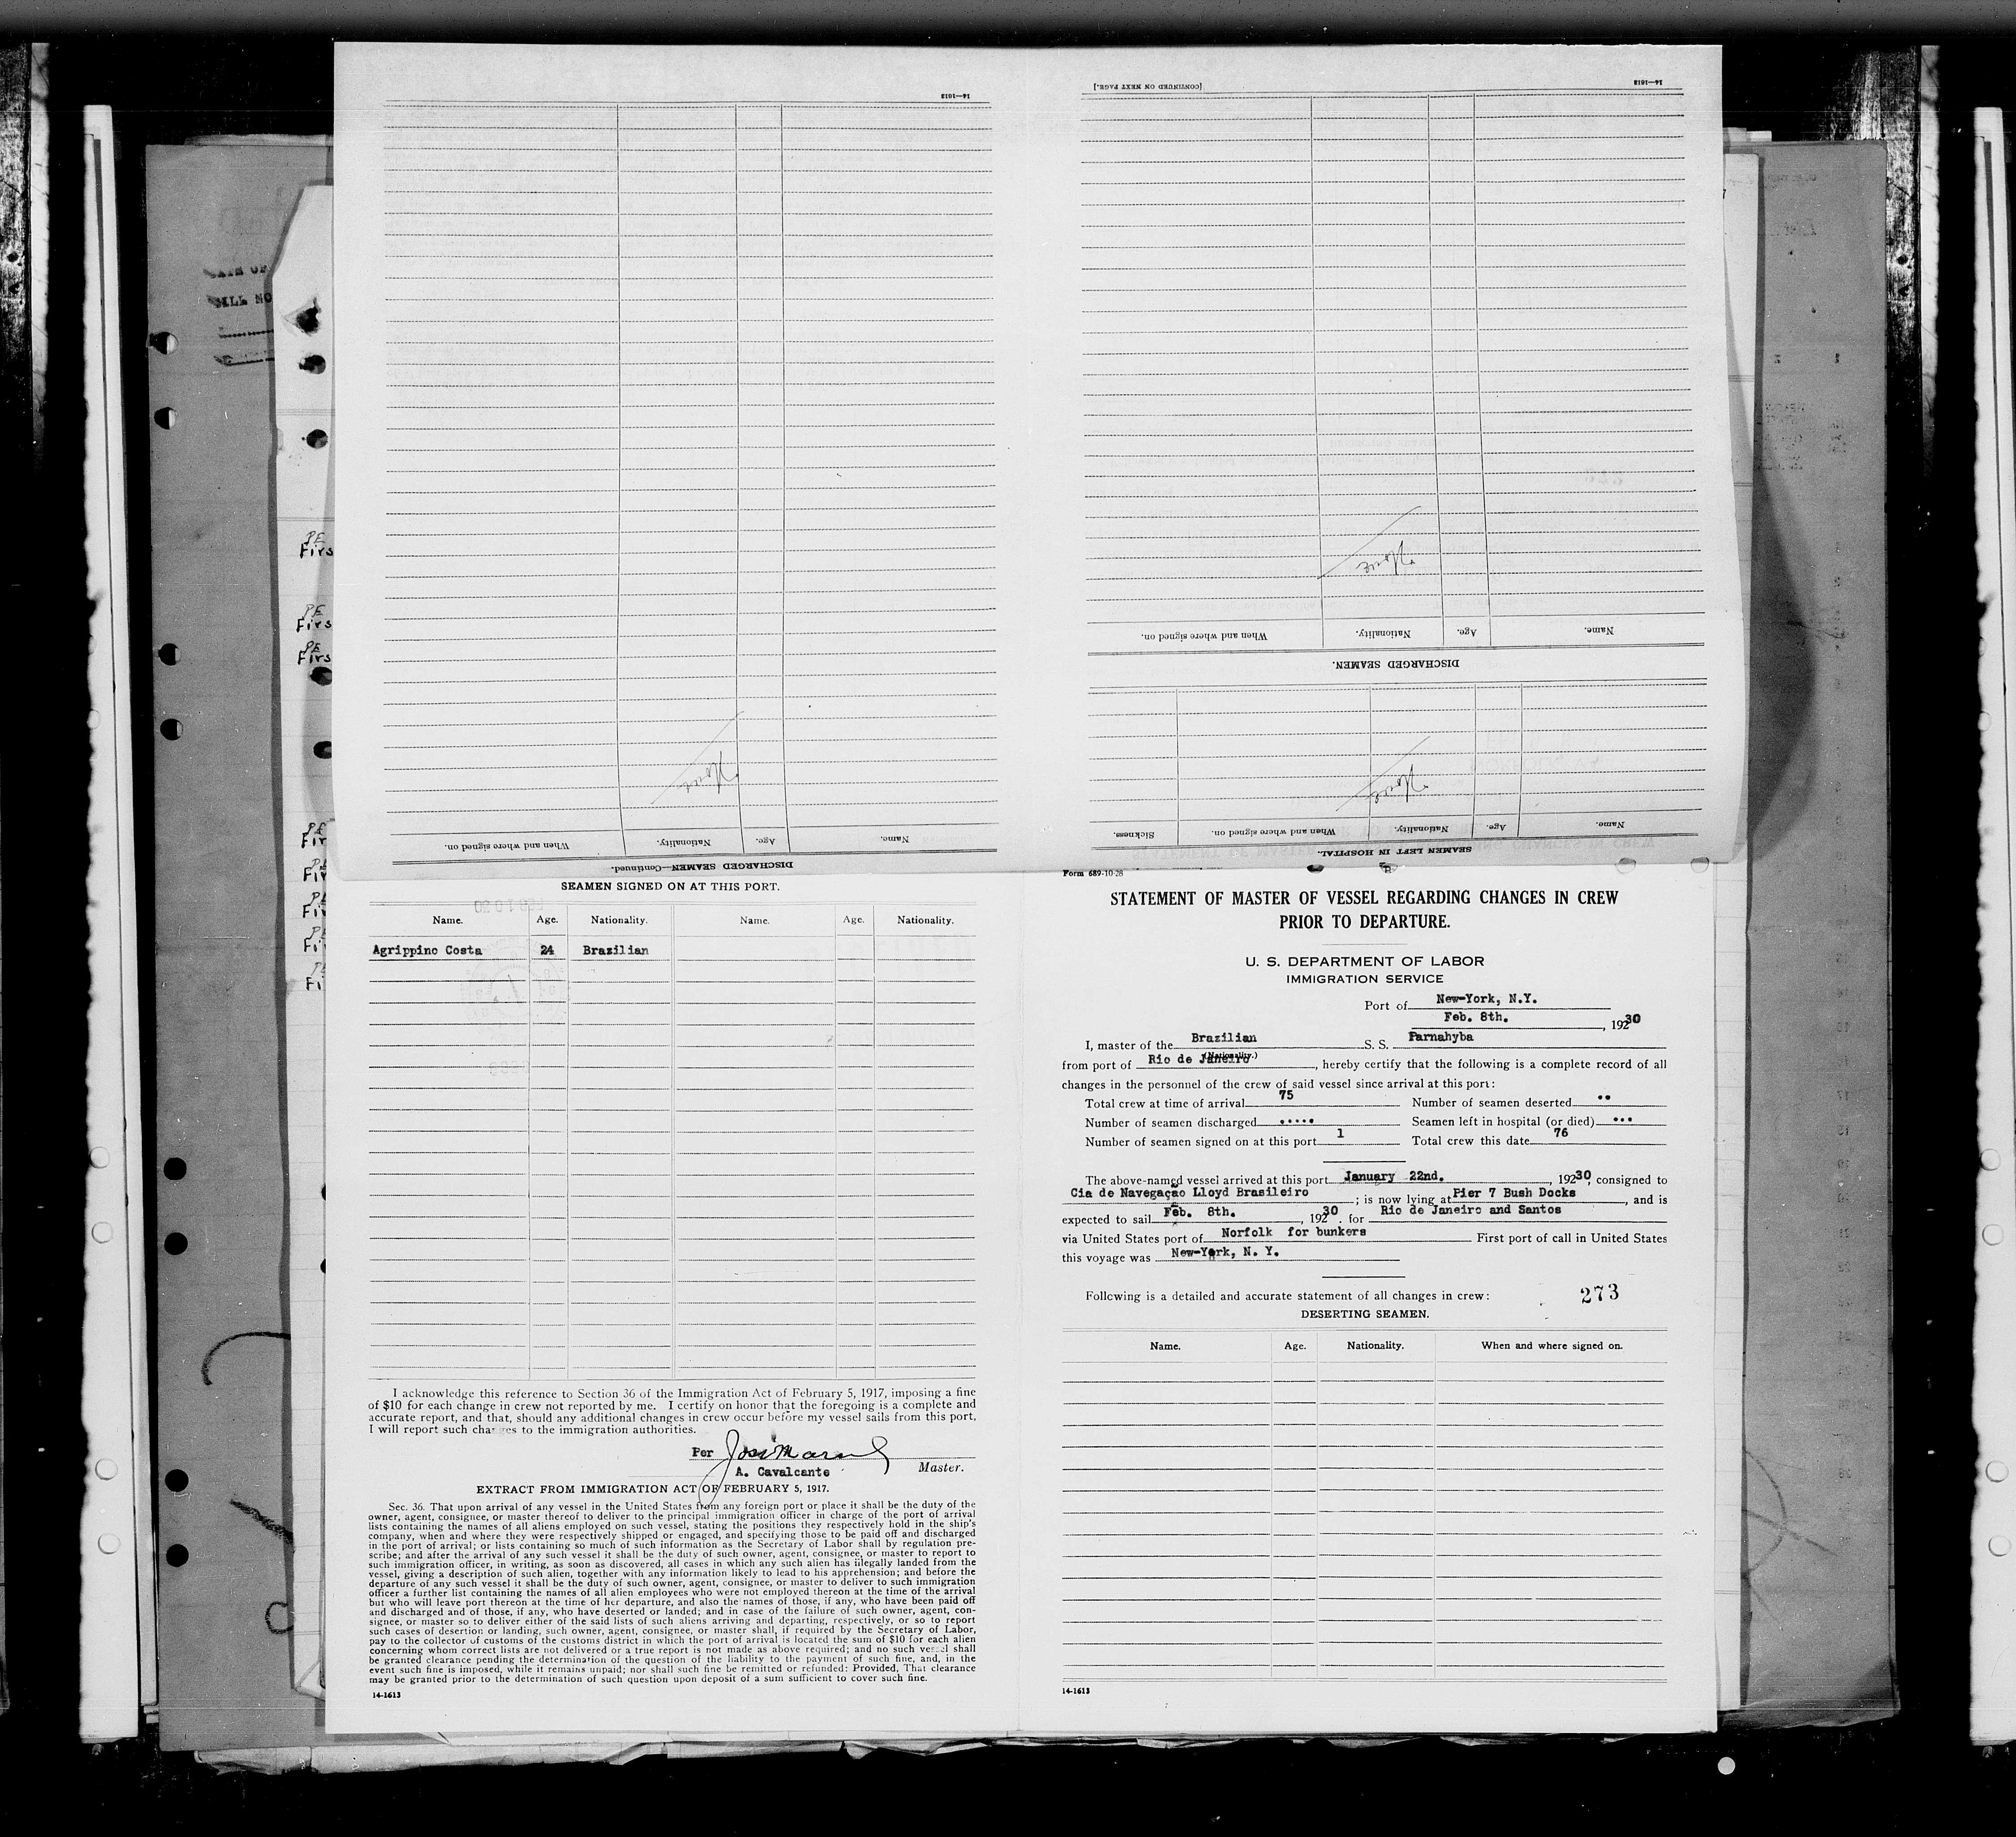 14—1613
[CONTINUED ON NEXT PAGE.]
14—1613
None
Name. Age. Nationality. When and where signed on.
DISCHARGED SEAMEN.
None
None
Name. Age. Nationality. When and where signed on. Sickness.
SEAMEN LEFT IN HOSPITAL.
Name. Age. Nationality. When and where signed on.
DISCHARGED SEAMEN—Continued.
SEAMEN SIGNED ON AT THIS PORT.
Name. Age. Nationality. Name. Age. Nationality.
Agrippino Costa 24 Brazilian
I acknowledge this reference to Section 36 of the Immigration Act of February 5, 1917, imposing a fine
of $10 for each change in crew not reported by me. I certify on honor that the foregoing is a complete and
accurate report, and that, should any additional changes in crew occur before my vessel sails from this port,
I will report such changes to the immigration authorities.
Per
A. Cavalcante Master.
EXTRACT FROM IMMIGRATION ACT OF FEBRUARY 5, 1917.
Sec. 36. That upon arrival of any vessel in the United States from any foreign port or place it shall be the duty of the
owner, agent, consignee, or master thereof to deliver to the principal immigration officer in charge of the port of arrival
lists containing the names of all aliens employed on such vessel, stating the positions they respectively hold in the ship's
company, when and where they were respectively shipped or engaged, and specifying those to be paid off and discharged
in the port of arrival; or lists containing so much of such information as the Secretary of Labor shall by regulation pre-
scribe; and after the arrival of any such vessel it shall be the duty of such owner, agent, consignee, or master to report to
such immigration officer, in writing, as soon as discovered, all cases in which any such alien has illegally landed from the
vessel, giving a description of such alien, together with any information likely to lead to his apprehension; and before the
departure of any such vessel it shall be the duty of such owner, agent, consignee, or master to deliver to such immigration
officer a further list containing the names of all alien employees who were not employed thereon at the time of the arrival
but who will leave port thereon at the time of her departure, and also the names of those, if any, who have been paid off
and discharged and of those, if any, who have deserted or landed; and in case of the failure of such owner, agent, con-
signee, or master so to deliver either of the said lists of such aliens arriving and departing, respectively, or so to report
such cases of desertion or landing, such owner, agent, consignee, or master shall, if required by the Secretary of Labor,
pay to the collector of customs of the customs district in which the port of arrival is located the sum of $10 for each alien
concerning whom correct lists are not delivered or a true report is not made as above required; and no such vessel shall
be granted clearance pending the determination of the question of the liability to the payment of such fine, and, in the
event such fine is imposed, while it remains unpaid; nor shall such fine be remitted or refunded: Provided, That clearance
may be granted prior to the determination of such question upon deposit of a sum sufficient to cover such fine.
14-1613
Form 689-10-28
STATEMENT OF MASTER OF VESSEL REGARDING CHANGES IN CREW
PRIOR TO DEPARTURE.
U. S. DEPARTMENT OF LABOR
IMMIGRATION SERVICE
Port of New-York, N.Y.
Feb. 8th. , 1930
I, master of the Brazilian S. S. Parnahyba
(Nationality.)
from port of Rio de Janeiro , hereby certify that the following is a complete record of all
changes in the personnel of the crew of said vessel since arrival at this port:
Total crew at time of arrival 75 Number of seamen deserted ..
Number of seamen discharged ..... Seamen left in hospital (or died) ...
Number of seamen signed on at this port 1 Total crew this date 76
The above-named vessel arrived at this port January 22nd. , 1930, consigned to
Cia de Navegação Lloyd Brasileiro ; is now lying at Pier 7 Bush Docks , and is
expected to sail Feb. 8th. , 1930. for Rio de Janeiro and Santos
via United States port of Norfolk for bunkers First port of call in United States
this voyage was New-York, N. Y.
Following is a detailed and accurate statement of all changes in crew: 273
DESERTING SEAMEN.
Name. Age. Nationality. When and where signed on.
14-1613